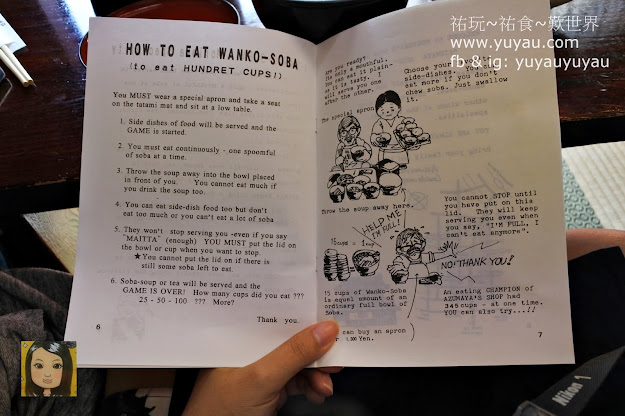 祐玩~祐食~歎世界
www.yuyau.com
fb & ig: yuyauyuyau
HOW TO EAT WANKO-SOBA
(to eat HUNDRET CUPS!)
You MUST wear a special apron and take a seat
on the tatami mat and sit at a low table.
1. Side dishes of food will be served and the
GAME is started.
2. You must eat continuously - one spoomful
of soba at a time.
3. Throw the soup away into the bowl placed
in front of you. You cannot eat much if
you drink the soup too.
4. You can eat side-dish food too but don't
eat too much or you can't eat a lot of soba
5. They won't stop serving you -even if you say
"MAITTA" (enough) YOU MUST put the lid on
the bowl or cup when you want to stop.
★You cannot put the lid on if there is
still some soba left to eat.
6. Soba-soup or tea will be served and the
GAME IS OVER! How many cups did you eat ???
25 - 50 - 100 ??? More?
Thank you.
6
Are you ready?
It's only a mouthful.
You can eat it plain-
as it is tasty. I
will serve you one
after the other.
The special apron
Choose your
side-dishes.
eat more if you don't
chew soba. Just swallow
it.
Throw the soup away here.
HELP ME
I'M FULL!
15 cups = 1
You cannot STOP until
you have put on this
lid. They will keep
serving you even when
you say, "I'M FULL, I
can't eat anymore".
NO! THANK YOU!
15 cups of Wanko-Soba
is equal amount of an
ordinary full bowl of
Soba.
can buy an apron
1,300 Yen.
An eating CHAMPION of
AZUMAYA'S SHOP had
345 cups - at one time.
YOU can also try...!!
7
Nikon 1